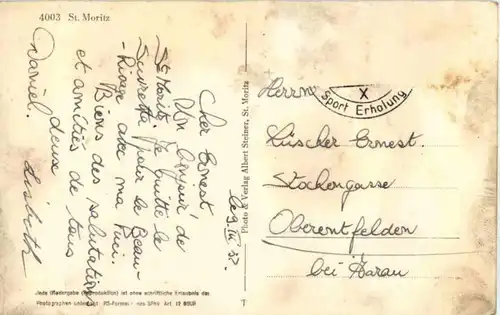 4003 St. Moritz
Le 9. III 37.
Cher Ernest
Un bonjour de
St. Moritz. Je quitte le
Suvretta pour le Beau-
Rivage avec ma
Biens des salutations
et amitiés de tous
deux
Daniel. Lisbeth
Photo & Verlag Albert Steiner, St. Moritz
X
Sport Erholung
Herrn
Lüscher Ernest.
Stockengasse
Oberentfelden
bei Aarau
Jede Wiedergabe (Reproduktion) ist ohne schriftliche Erlaubnis des
Photographen untersagt.
T